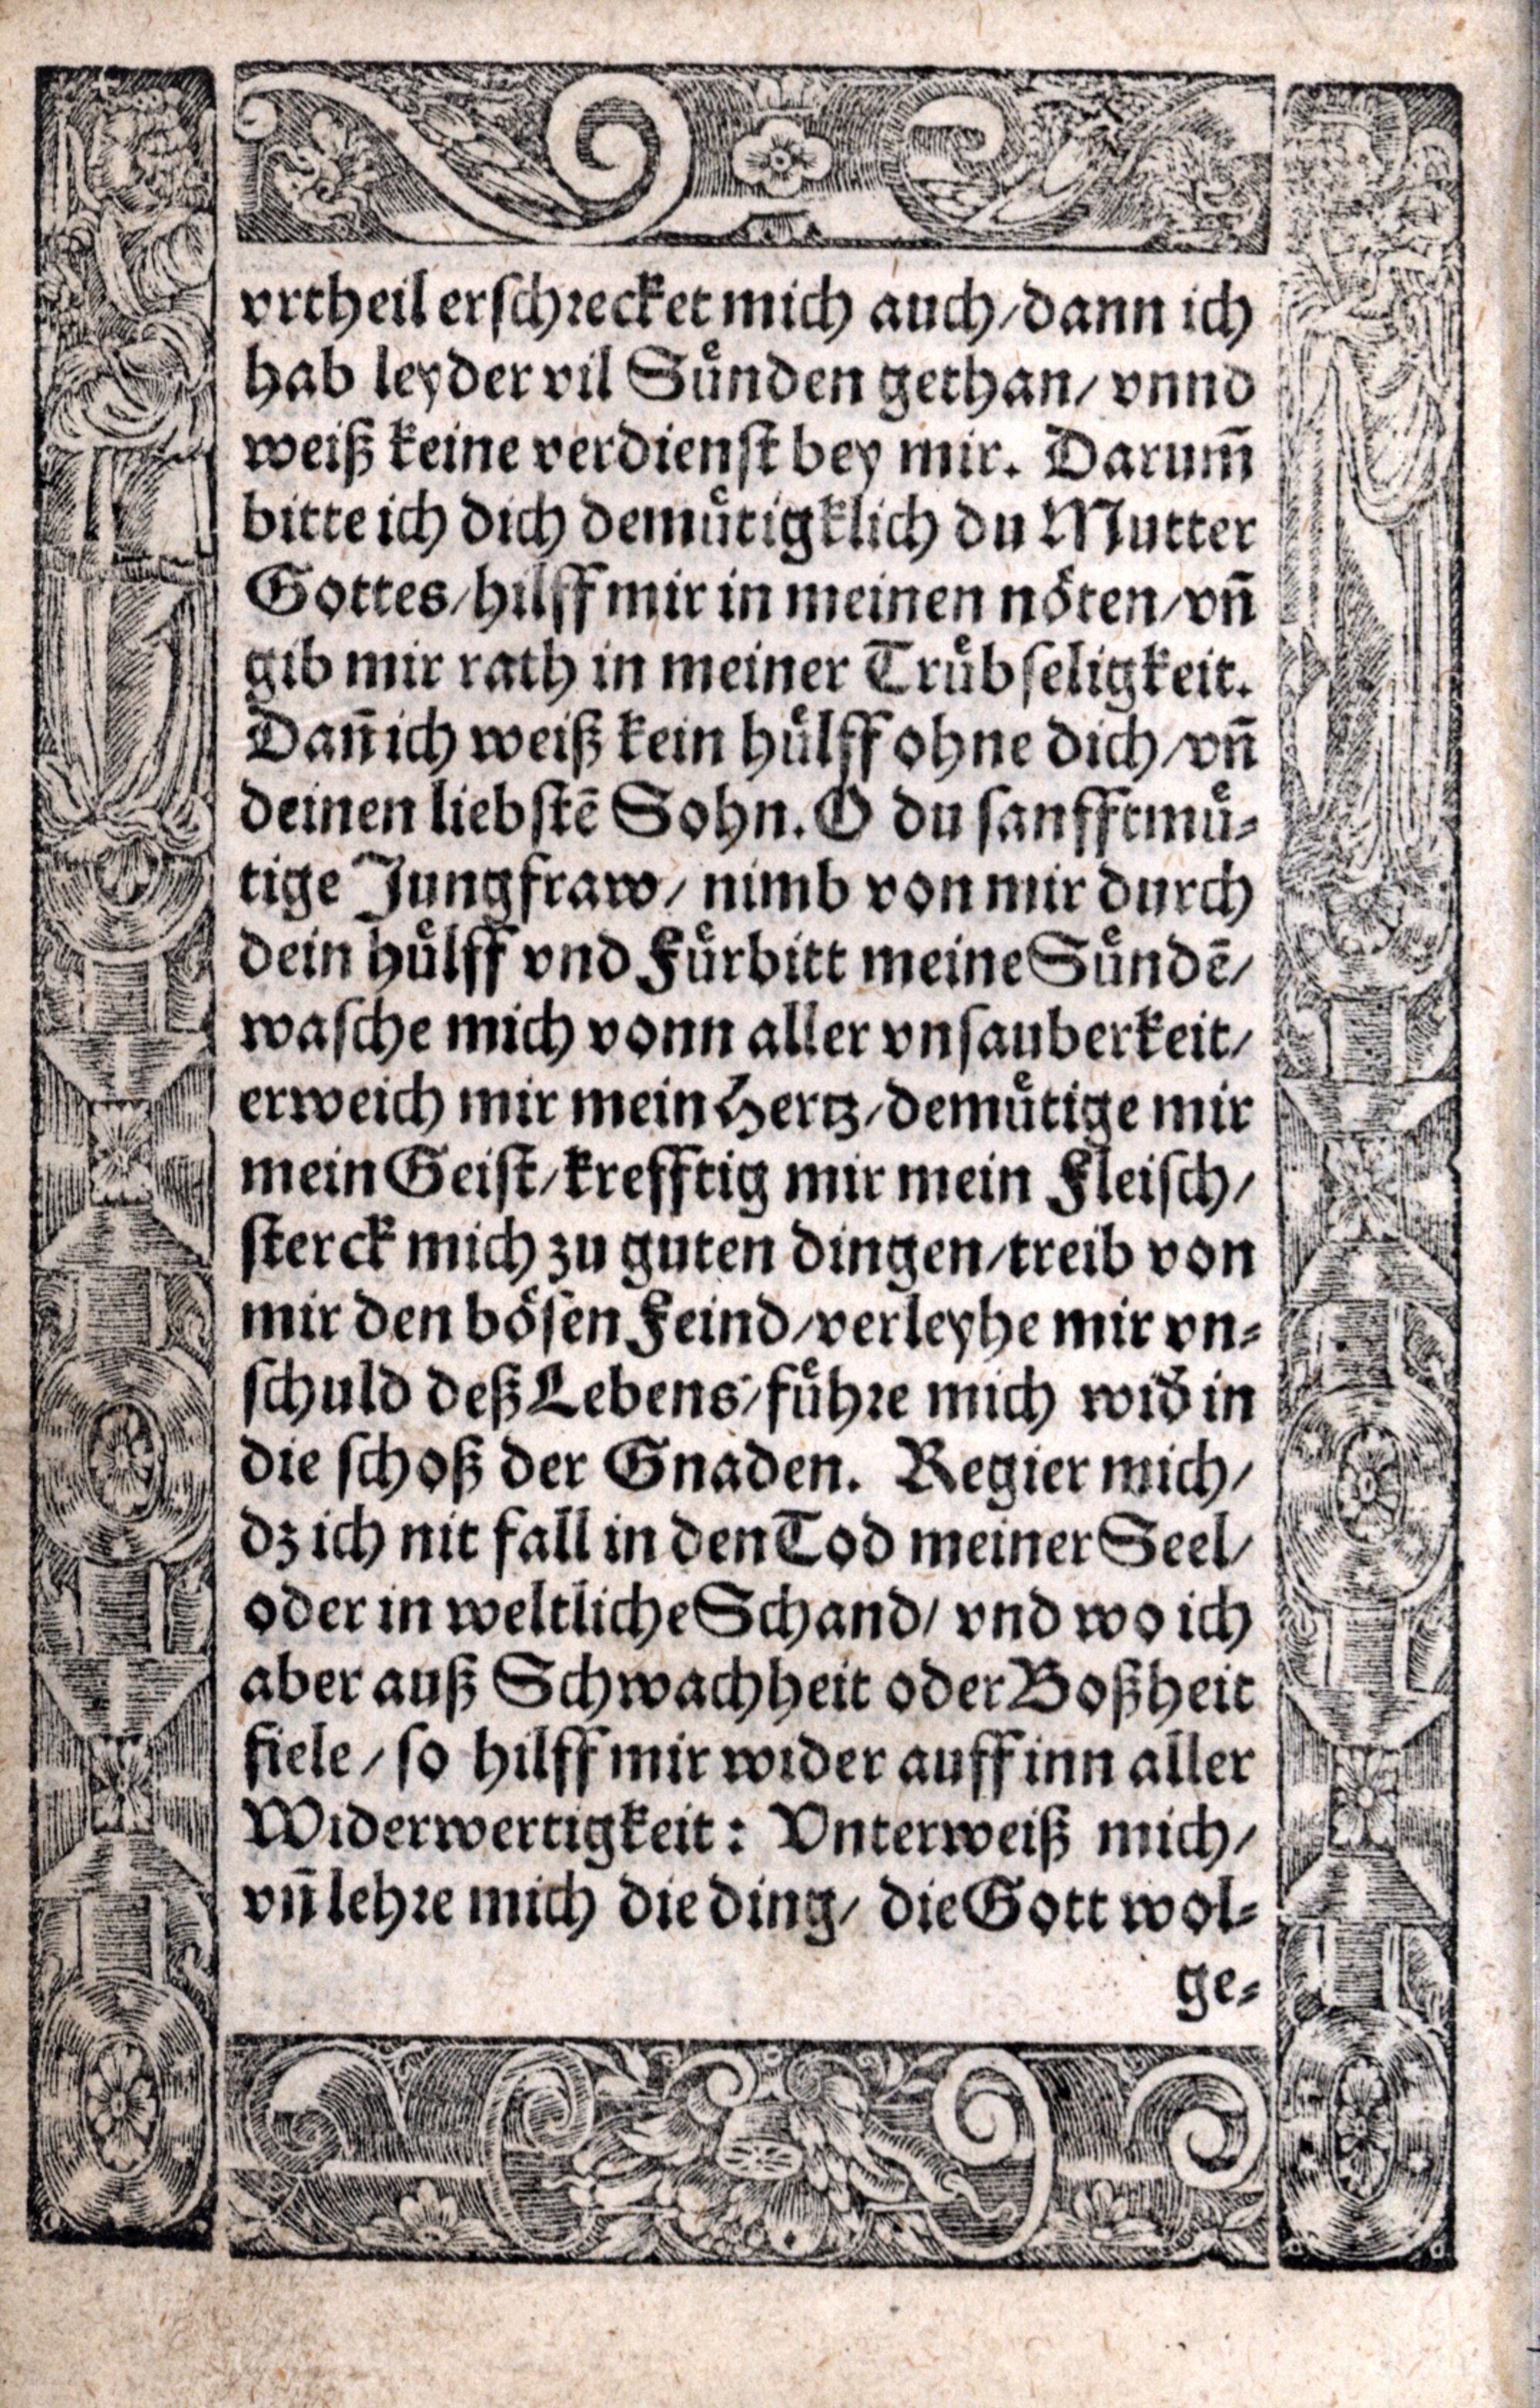 vrtheil erſchꝛecket mich auch/dann ich
hab leyder vil Suͤnden gethan/ vnnd
weiß keine verdienſt bey mir. Darum̄
bitte ich dich demuͤtigklich du Mutter
Gottes/hilff mir in meinen noͤten/vn̄
gib mir rath in meiner Truͤbſeligkeit.
Dan̄ ich weiß kein huͤlff ohne dich/vn̄
deinen liebſtē Sohn. O du ſanfftmuͤ⸗
tige Jungfraw/ nimb von mir durch
dein huͤlff vnd Fuͤrbitt meine Suͤndē/
waſche mich vonn aller vnſauberkeit/
erweich mir mein Hertz/demuͤtige mir
mein Geiſt/krefftig mir mein Fleiſch/
ſterck mich zu guten dingen/treib von
mir den boͤſen Feind/verleyhe mir vn⸗
ſchuld deß Lebens/fuͤhꝛe mich wid̕ in
die ſchoß der Gnaden. Regier mich/
dz ich nit fall in den Tod meiner Seel/
oder in weltliche Schand/ vnd wo ich
aber auß Schwachheit oder Boßheit
fiele/ſo hilff mir wider auff inn aller
Widerwertigkeit: Vnterweiß mich/
vn̄ lehꝛe mich die ding/ die Gott wol⸗
ge⸗